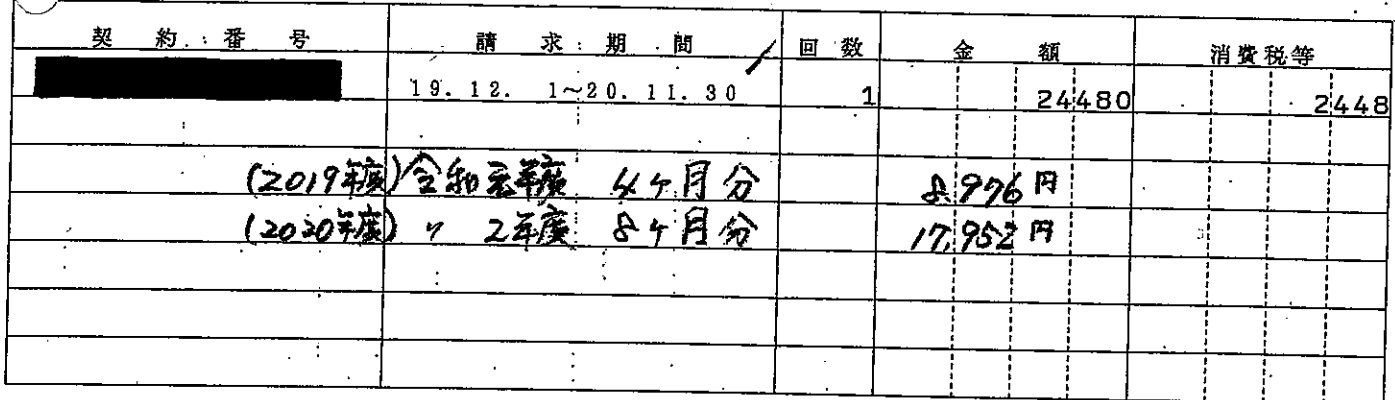 契約番号 請求期間 回数 金額 消費税等
19.12. 1~20.11.30 1 24480 2448
(2019年度)令和元年度 4ヶ月分 8,976円
(2020年度) 〃 2年度 8ヶ月分 17,952円